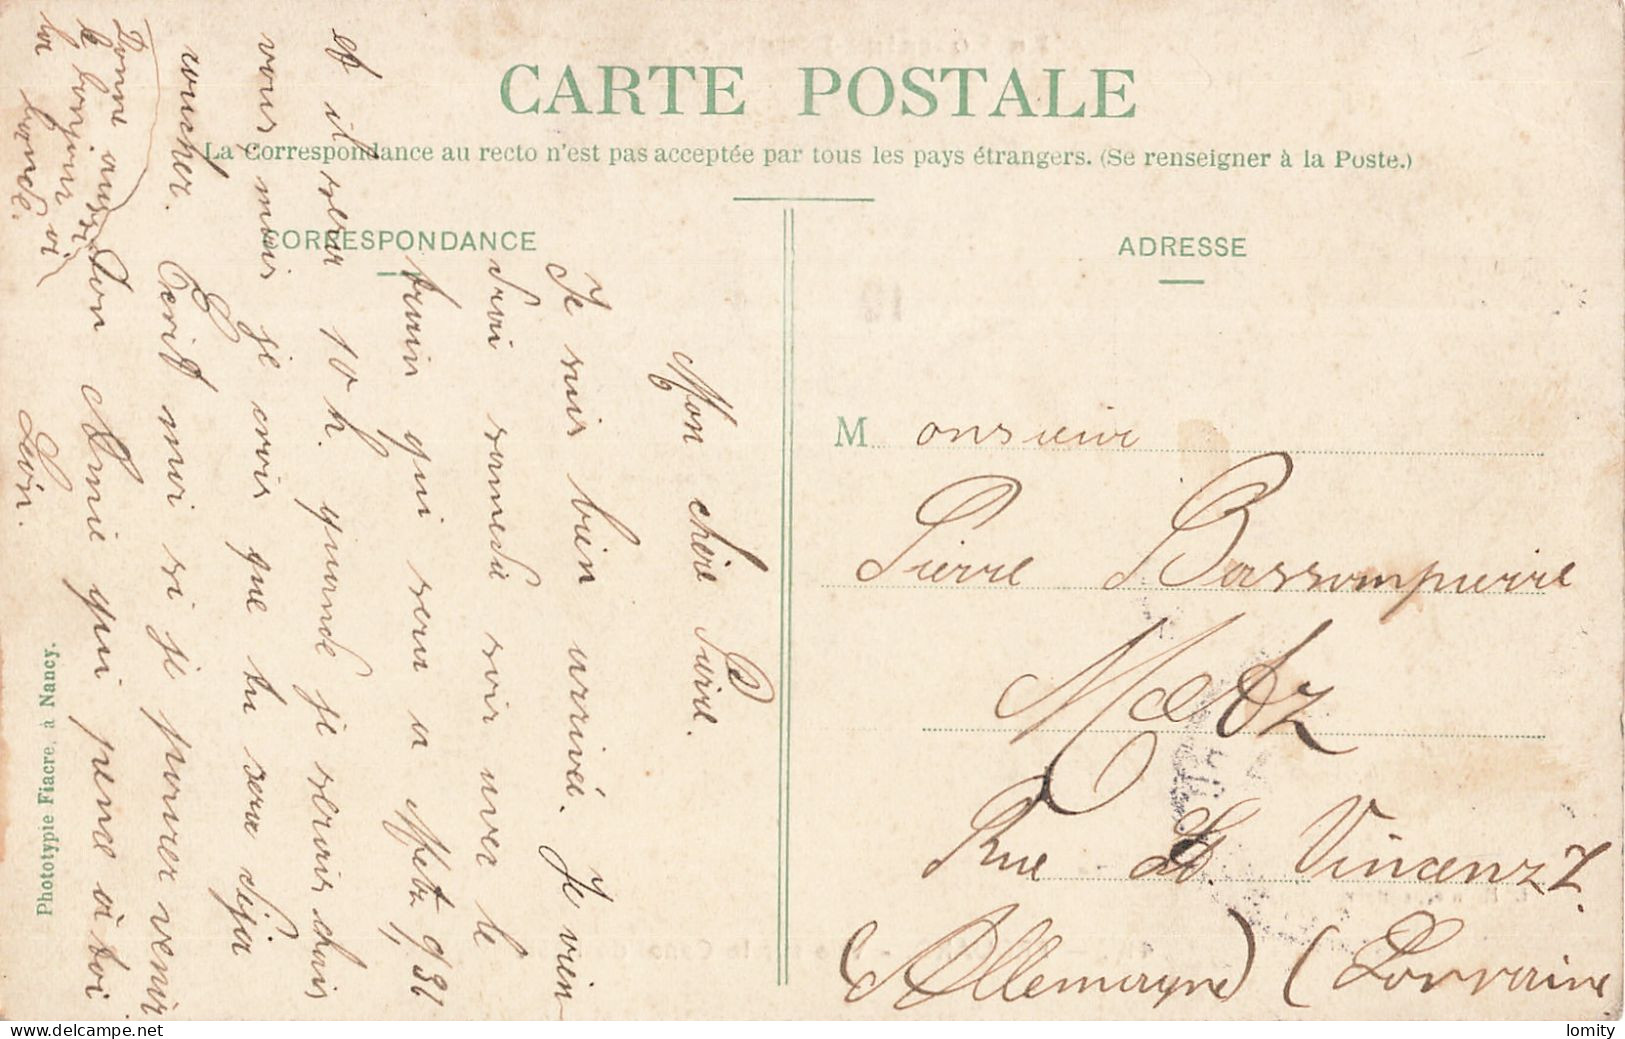 CARTE POSTALE
La Correspondance au recto n'est pas acceptée par tous les pays étrangers. (Se renseigner à la Poste.)
CORRESPONDANCE
Mon chère Pierre.
Je suis bien arrivée. Je vien
drai samedi soir aver le
train qui sera a Metz 9,31
et il sera 10 h. quande je serais chais
vous mais je crois que tu sera dejia
coucher. Ecrit moi si je pourer venir
Ton Amie qui pence à toi
Léon.
Donne aussi
le bonjour
la bande.
ADRESSE
Monsieur
Pierre Bassompierre
Metz
Rue St. Vincenz 7.
(Allemagne) (Lorraine
Phototypie Fiacre, à Nancy.
www.delcampe.net
lomity